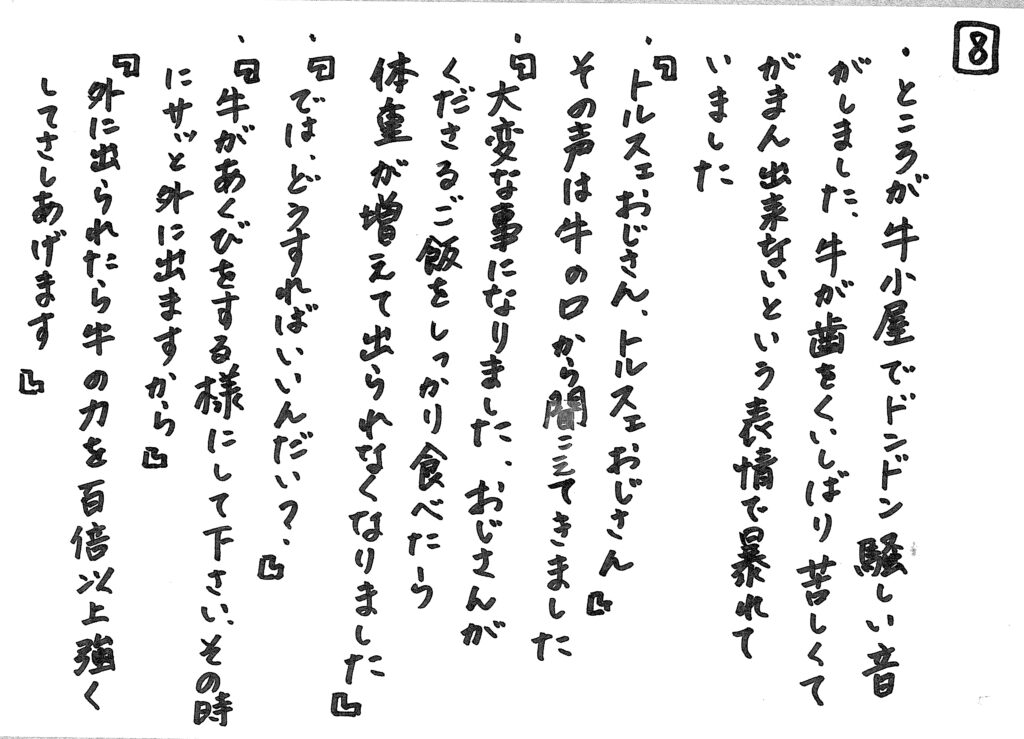 8
・ところが牛小屋でドンドン騒しい音
がしました、牛が歯をくいしばり苦しくて
がまん出来ないという表情で暴れて
いました
・『トルスェおじさん、トルスェおじさん』
その声は牛の口から聞こえてきました
・『大変な事になりました、おじさんが
くださるご飯をしっかり食べたら
体重が増えて出られなくなりました』
・『では、どうすればいいんだい?、』
・『牛があくびをする様にして下さい、その時
にサッと外に出ますから』
『外に出られたら牛の力を百倍以上強く
してさしあげます』